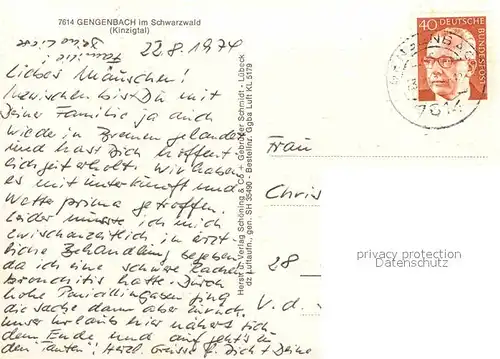 7614 GENGENBACH im Schwarzwald
(Kinzigtal)
22.8.1974
Liebes Mäuschen!
Inzwischen bist Du mit
Deiner Familie ja auch
wieder in Bremen gelandet
und hast Dich hoffent-
lich gut erholt. Wir haben
es mit Unterkunft und
Wetter prima getroffen.
Leider musste ich mich
zwischenzeitlich in ärzt-
liche Behandlung begeben
da ich eine schwere Rachen
bronchitis hatte. Durch
hohe Penicillingaben ging
die Sache dann aber zurück.
Unser Urlaub hier nähert sich
dem Ende und auf geht's in
den Herzl. Grüsse f. Dich + Deine
Familie!
Deine
Herst. u. Verlag Schöning & Co + Gebrüder Schmidt - Lübeck
dz Luftaufn., gen. SH 35490 - Bestellnr. Ggba Luft KL 5179
40 DEUTSCHE BUNDESPOST
7614
Frau
Chris
28
V.d.
privacy protection
watermarked